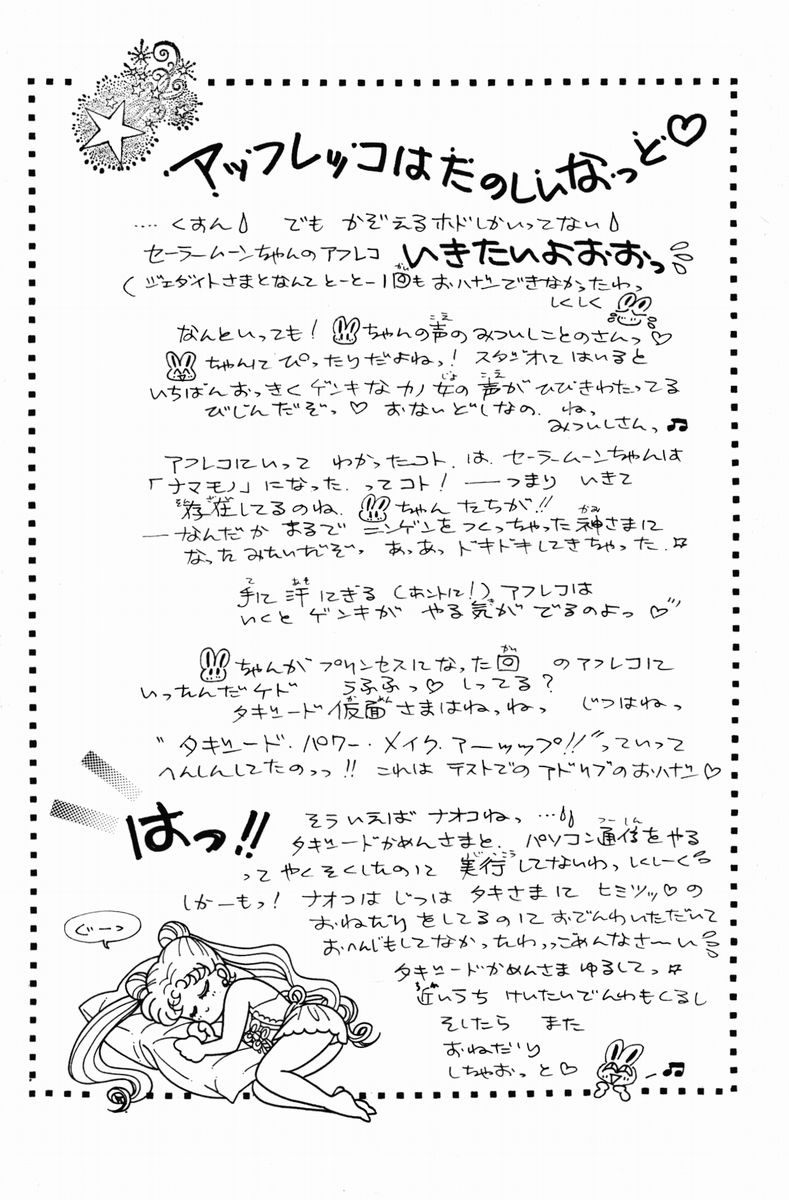 アッフレッコはたのしいなっと♡
‥‥くすん でも かぞえるホドしかいってない
セーラームーンちゃんのアフレコ いきたいよおおっ
(ジェダイトさまとなんて とーとー1回もおハナシできなかったわっ
しくしく
なんといっても! ちゃんの声のみついしことのさんっ♡
ちゃんにぴったりだよねっ! スタジオにはいると
いちばんおっきくゲンキなカノ女の声がひびきわたってる
びじんだぞっ♡ おないどしなの、ねっ
みついしさんっ♫
アフレコにいって わかったコト、は、セーラームーンちゃんは
「ナマモノ」になった、ってコト!――つまり いきて
存在してるのね、 ちゃんたちが!!
―なんだか まるで ニンゲンをつくっちゃった神さまに
なったみたいだぞっ あっあっ ドキドキしてきちゃった☆
手に汗にぎる(ホントに!)アフレコは
いくと ゲンキが やる気が でるのよっ♡
ちゃんが プリンセスになった回 のアフレコに
いったんだケド うふふっ♡ しってる?
タキシード仮面さまはねっねっ じつはねっ
“タキシード・パワー・メイク・アーップ!!”っていって
へんしんしてたのっっ!! これは テストでのアドリブのおハナシ♡
はっ!!
そういえば ナオコねっ…
タキシードかめんさまと、パソコン通信をやる
って やくそくしたのに 実行してないわっしくしーく
しかーもっ! ナオコは じつは タキさまに ヒミツッ♡の
おねだりをしてるのにおでんわいただいて
おへんじもしてなかったわっっごめんなさーい
タキシードかめんさま ゆるしてっ☆
近いうち けいたいでんわもくるし
そしたら また
おねだり
しちゃおっと♡
ぐーっ